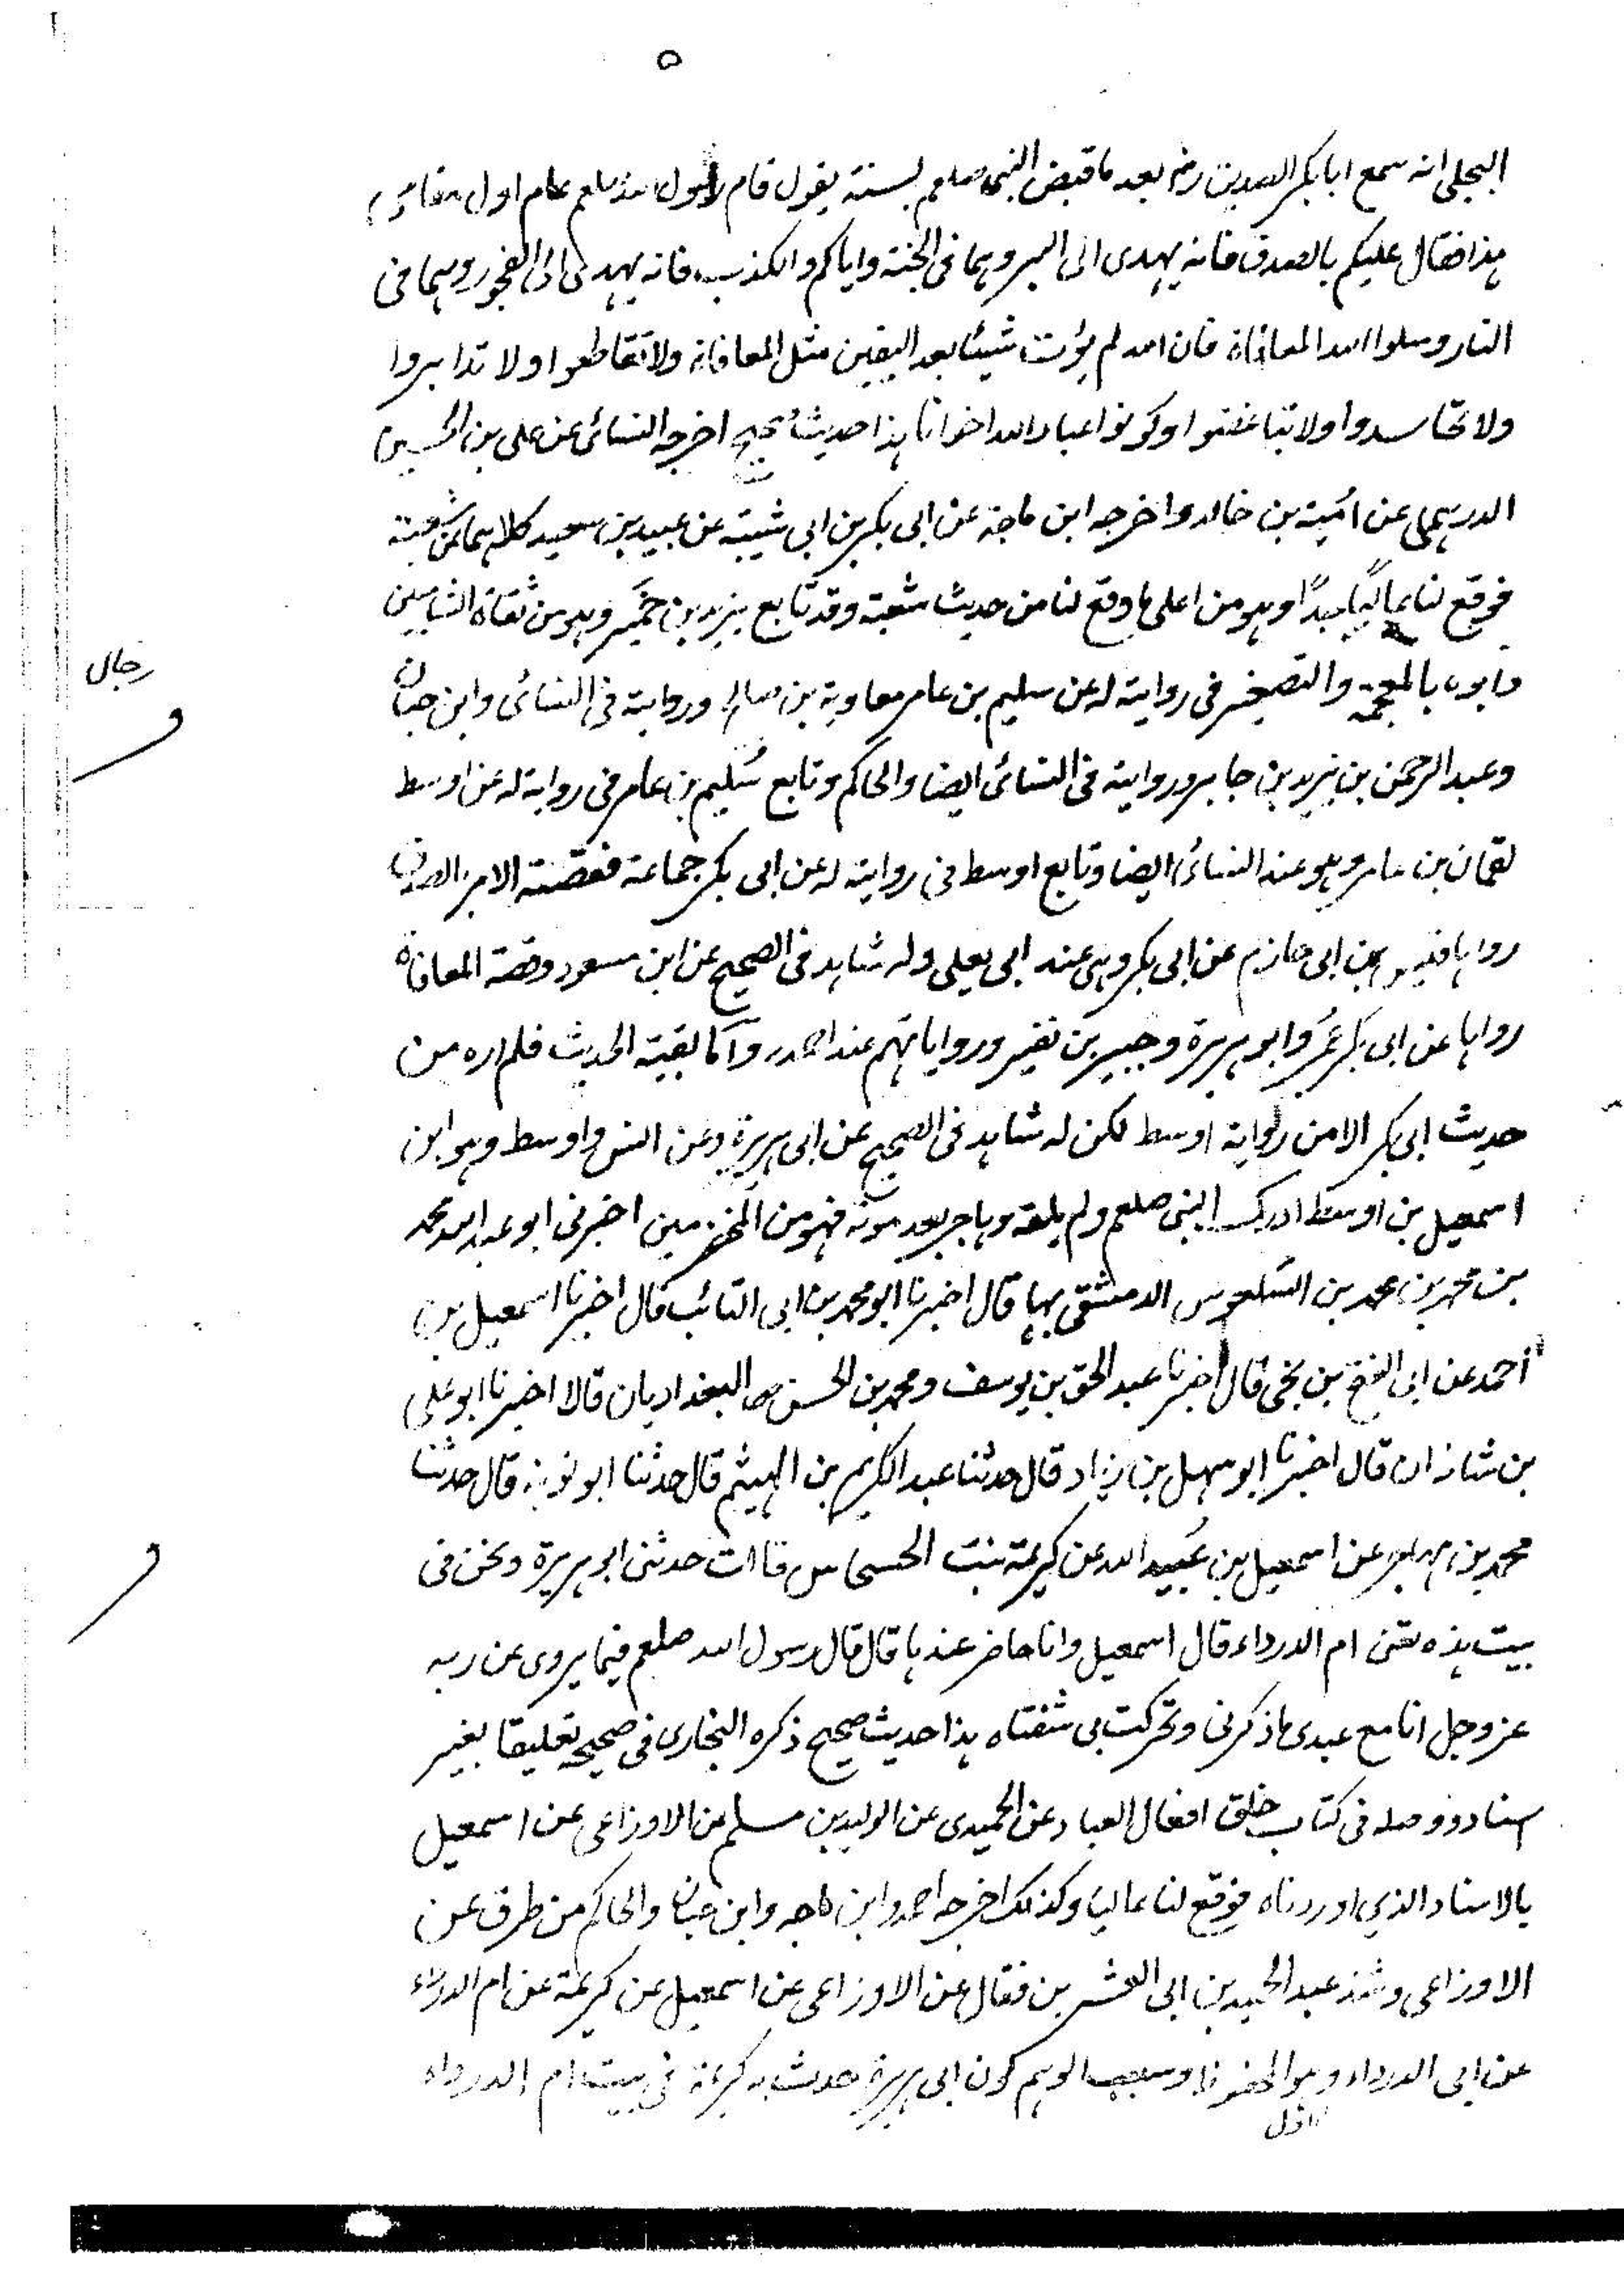 ٥
البجلى انه سمع ابا بكر الصديق رض بعد ما قبض النبى صلعم بسنة يقول قام رسول الله صلعم عام اول مقامى
هذا فقال عليكم بالصدق فانه يهدى الى البر وهما فى الجنة واياكم والكذب فانه يهدى الى الفجور وهما فى
النار وسلوا الله المعافاة فان احد لم يؤت شيئا بعد اليقين مثل المعافاة ولا تقاطعوا ولا تدابروا
ولا تحاسدوا ولا تباغضوا وكونوا عباد الله اخوانا هذا حديث صحيح اخرجه النسائى عن على بن الحسين
الدرهمى عن امية بن خالد واخرجه ابن ماجة عن ابى بكر بن ابى شيبة عن عبيد بن سعيد كلاهما عن شعبة
فوقع لنا عاليًا جدًا وهو من اعلى ما وقع لنا من حديث شعبة وقد تابع يزيد بن خمير وهو من ثقاة الشاميين
وابوه بالمعجمة والتصغير فى رواية له عن سليم بن عامر معاوية بن صالح ورواية فى النسائى وابن حبان
رجال
وعبد الرحمن بن يزيد بن جابر ورواية فى النسائى ايضا والحاكم وتابع سُليم بن عامر فى رواية له عن اوسط
لقمان بن عامر وهو عند النسائى ايضا وتابع اوسط فى رواية له عن ابى بكر جماعة فقصة الامر بالصدق
رواها قيس بن ابى حازم عن ابى بكر وهى عند ابى يعلى وله شاهد فى الصحيح عن ابن مسعود وقصة المعافاة
رواها عن ابى بكر عمر وابو هريرة وجبير بن نفير ورواياتهم عند احمد واما بقية الحديث فلم اره من
حديث ابى بكر الا من رواية اوسط لكن له شاهد فى الصحيح عن ابى هريرة وعن انس واوسط وهو ابن
اسمعيل بن اوسط ادرك النبى صلعم ولم يلقه وهاجر بعد موته فهو من المخضرمين اخبرنى ابو عبد الله محمد
بن محمد بن محمد بن السلعوس الدمشقى بها قال اخبرنا ابو محمد بن ابى التائب قال اخبرنا اسمعيل بن
احمد عن ابى الفتح بن بختى قال اخبرنا عبد الحق بن يوسف ومحمد بن الحسن البغداديان قالا اخبرنا ابو على
بن شاذان قال اخبرنا ابو سهل بن زياد قال حدثنا عبد الكريم بن الهيثم قال حدثنا ابو توبة قال حدثنا
محمد بن مهاجر عن اسمعيل بن عُبيد الله عن كريمة بنت الحسحاس قالت حدثنى ابو هريرة ونحن فى
بيت هذه تعنى ام الدرداء قال اسمعيل وانا حاضر عندها قال قال رسول الله صلعم فيما يروى عن ربه
عز وجل انا مع عبدى ما ذكرنى وتحركت بى شفتاه هذا حديث صحيح ذكره البخارى فى صحيحه تعليقا بغير
اسناد ووصله فى كتاب خلق افعال العباد عن الحميدى عن الوليد بن مسلم عن الاوزاعى عن اسمعيل
بالاسناد الذي اوردناه فوقع لنا عاليا وكذلك اخرجه احمد وابن ماجه وابن حبان والحاكم من طرق عن
الاوزاعى وشذ عبد الحميد بن ابى العشرين فقال عن الاوزاعى عن اسمعيل عن كريمة عن ام الدرداء
عن ابى الدرداء وهو المحفوظ وسبب الوهم كون ابى هريرة حدث به كريمة فى بيت ام الدرداء
الاول